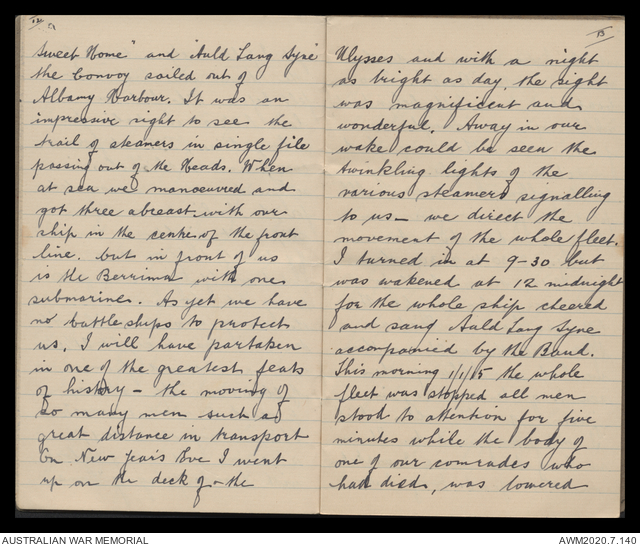 12
Sweet Home" and "Auld Lang Syne"
the Convoy sailed out of
Albany Harbour. It was an
impressive sight to see the
trail of steamers in single file
passing out of the Heads. When
at sea we manoeuvred and
got three abreast with our
ship in the centre of the front
line. but in front of us
is the Berrima with one
submarine. As yet we have
no battleships to protect
us. I will have partaken
in one of the greatest feats
of history - the moving of
so many men such a
great distance in transport
On New Year's Eve I went
up on the deck of - the
13
Ulysses and with a night
as bright as day, the sight
was magnificent and
wonderful. Away in our
wake could be seen the
twinkling lights of the
various steamers signalling
to us - we direct the
movement of the whole fleet.
I turned in at 9-30 but
was wakened at 12 midnight
for the whole ship cheered
and sang Auld Lang Syne
accompanied by the Band.
This morning 1/1/15 the whole
fleet was stopped all men
stood to attention for five
minutes while the body of
one of our comrades who
had died, was lowered
AUSTRALIAN WAR MEMORIAL
AWM2020.7.140